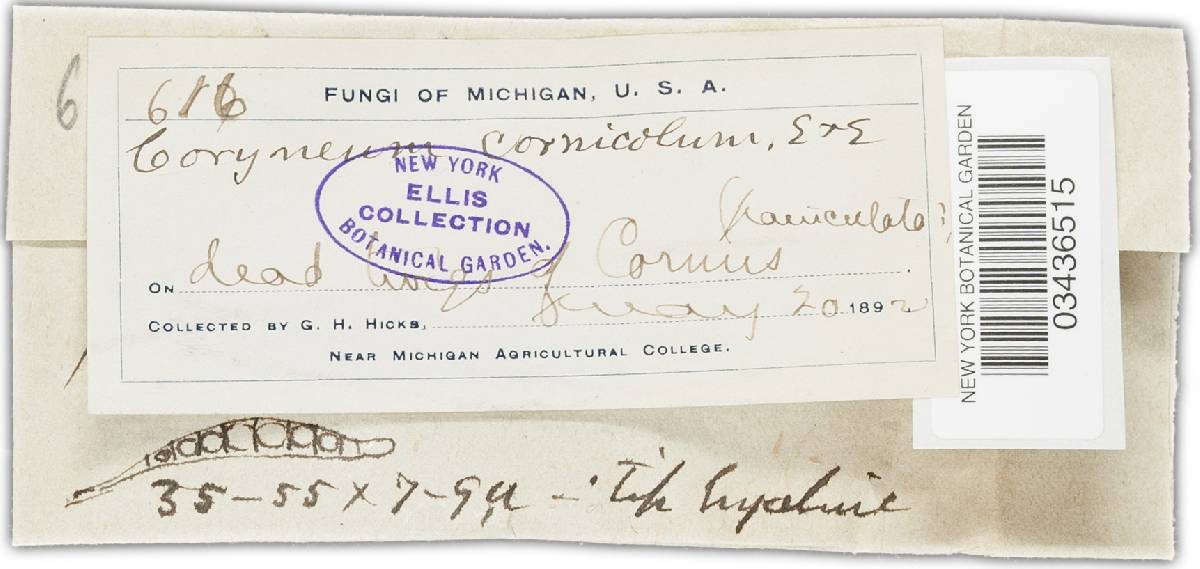 6
616 FUNGI OF MICHIGAN, U. S. A.
Coryneum cornicolum, E & E
NEW YORK
ELLIS
COLLECTION
BOTANICAL GARDEN.
(paniculata?)
ON dead twigs of Cornus
COLLECTED BY G. H. HICKS, May 20 1892
NEAR MICHIGAN AGRICULTURAL COLLEGE.
35–55 x 7–9µ – tip hyaline
NEW YORK BOTANICAL GARDEN
03436515